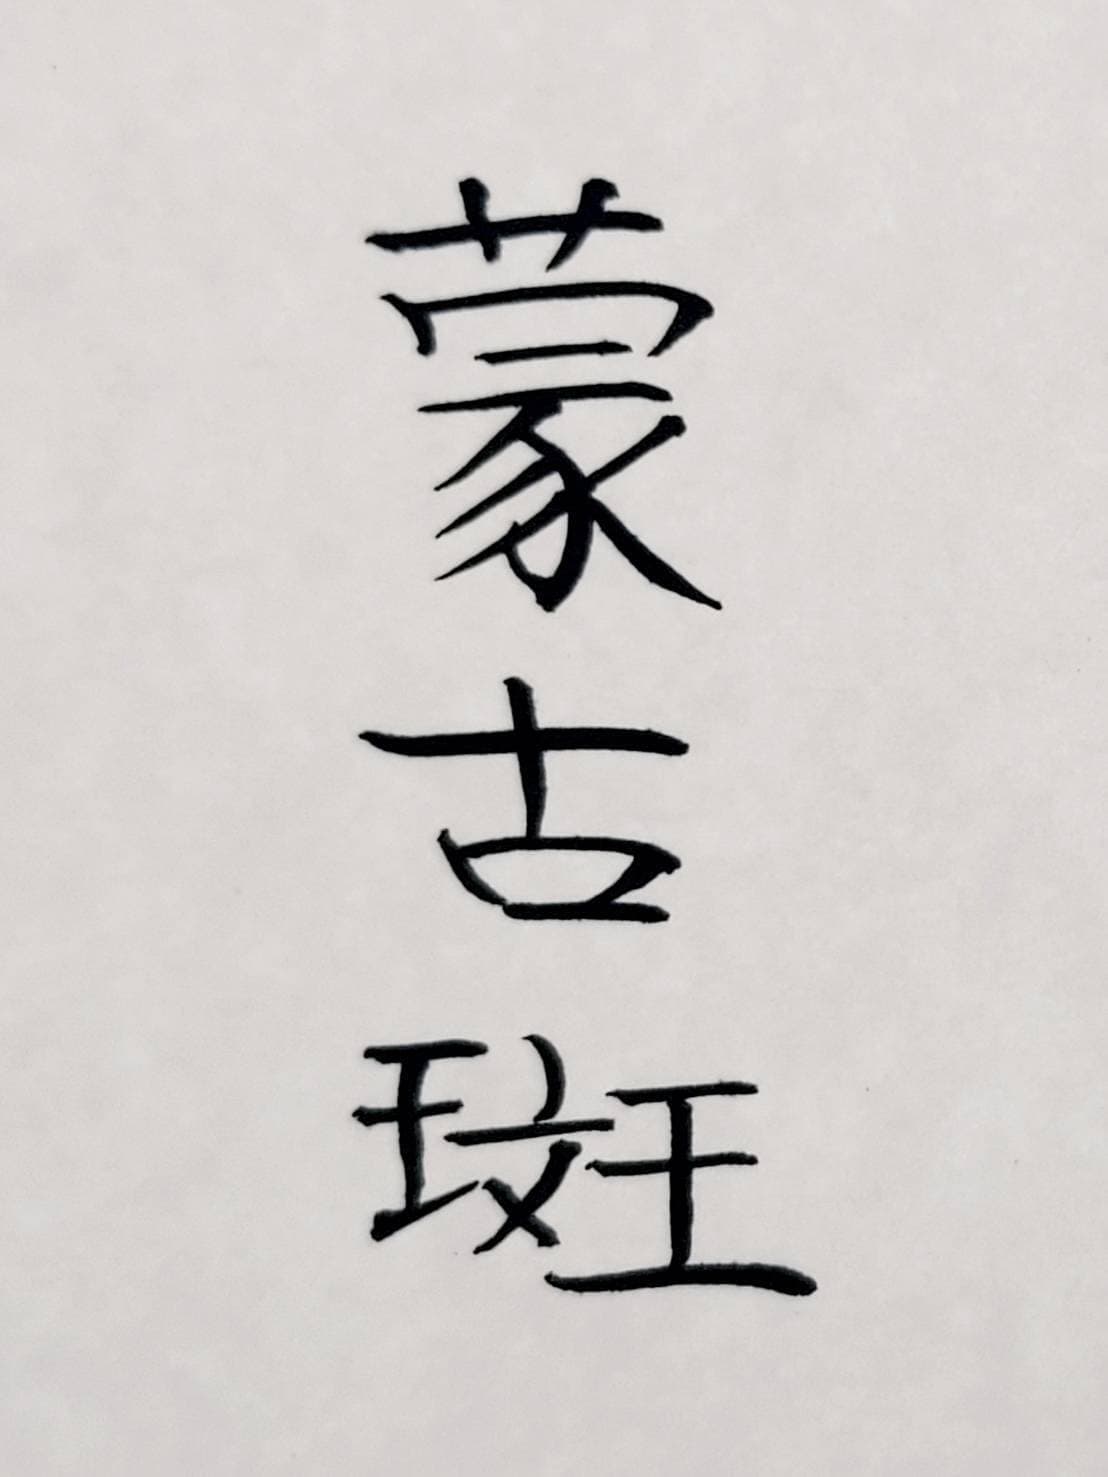 蒙古斑